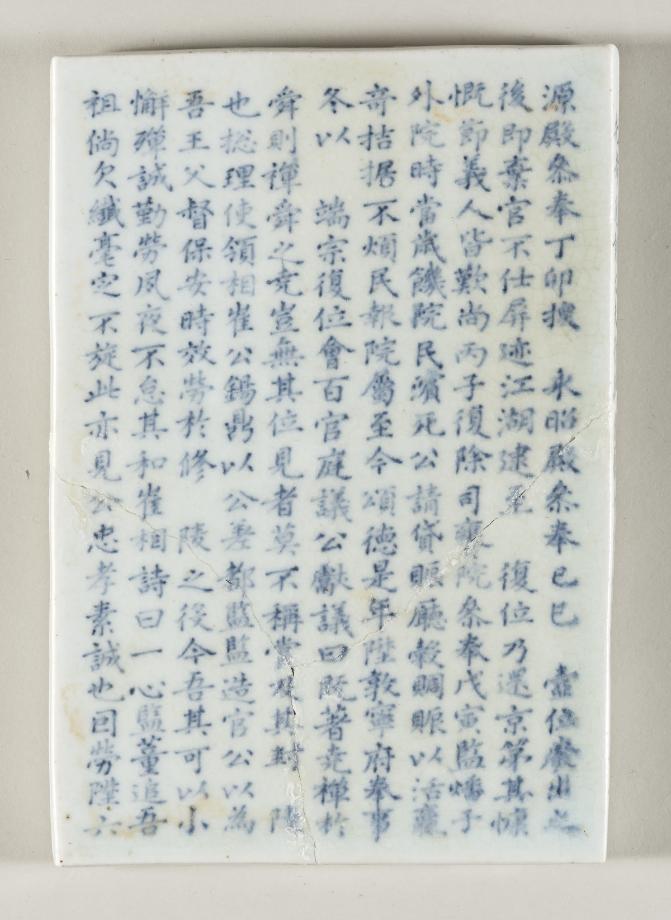 源殿叅奉丁卯搜 永昭殿叅奉己巳 壼位廢出之
後即棄官不仕屛迹江湖逮至 復位乃還京第其慷
慨節義人皆歎尙丙子復除司饔院叅奉戊寅監燔于
外院時當歲饑院民濱死公請貸賑廳穀賙賑以活竆
奇拮据不煩民報院屬至今頌德是年陞敦寧府奉事
冬以 端宗復位會百官庭議公獻議曰旣著堯禪於
舜則禪舜之堯豈無其位見者莫不稱當及其封 陵
也摠理使領相崔公錫鼎以公差都監監造官公以爲
吾王父督保安時效勞於修 陵之役今吾其可以小
懈殫誠勤勞夙夜不怠其和崔相詩曰一心監董追吾
祖倘欠纖毫定不旋此亦見公忠孝素誠也因勞陞六